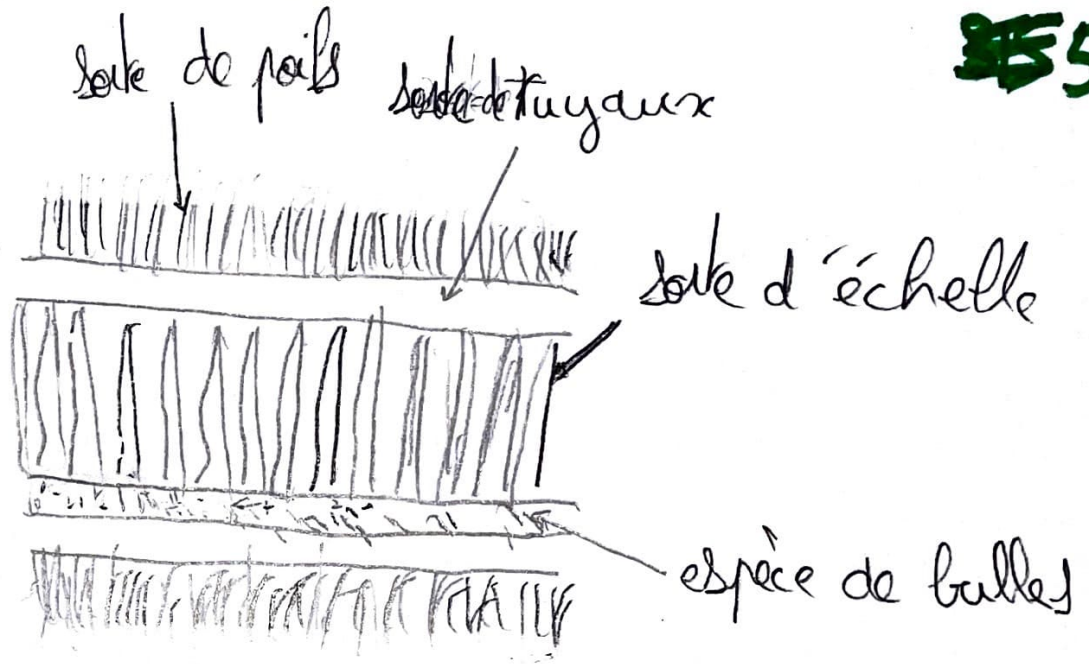 sorte de poils
sorte de tuyaux
5
sorte d'échelle
espèce de bulles